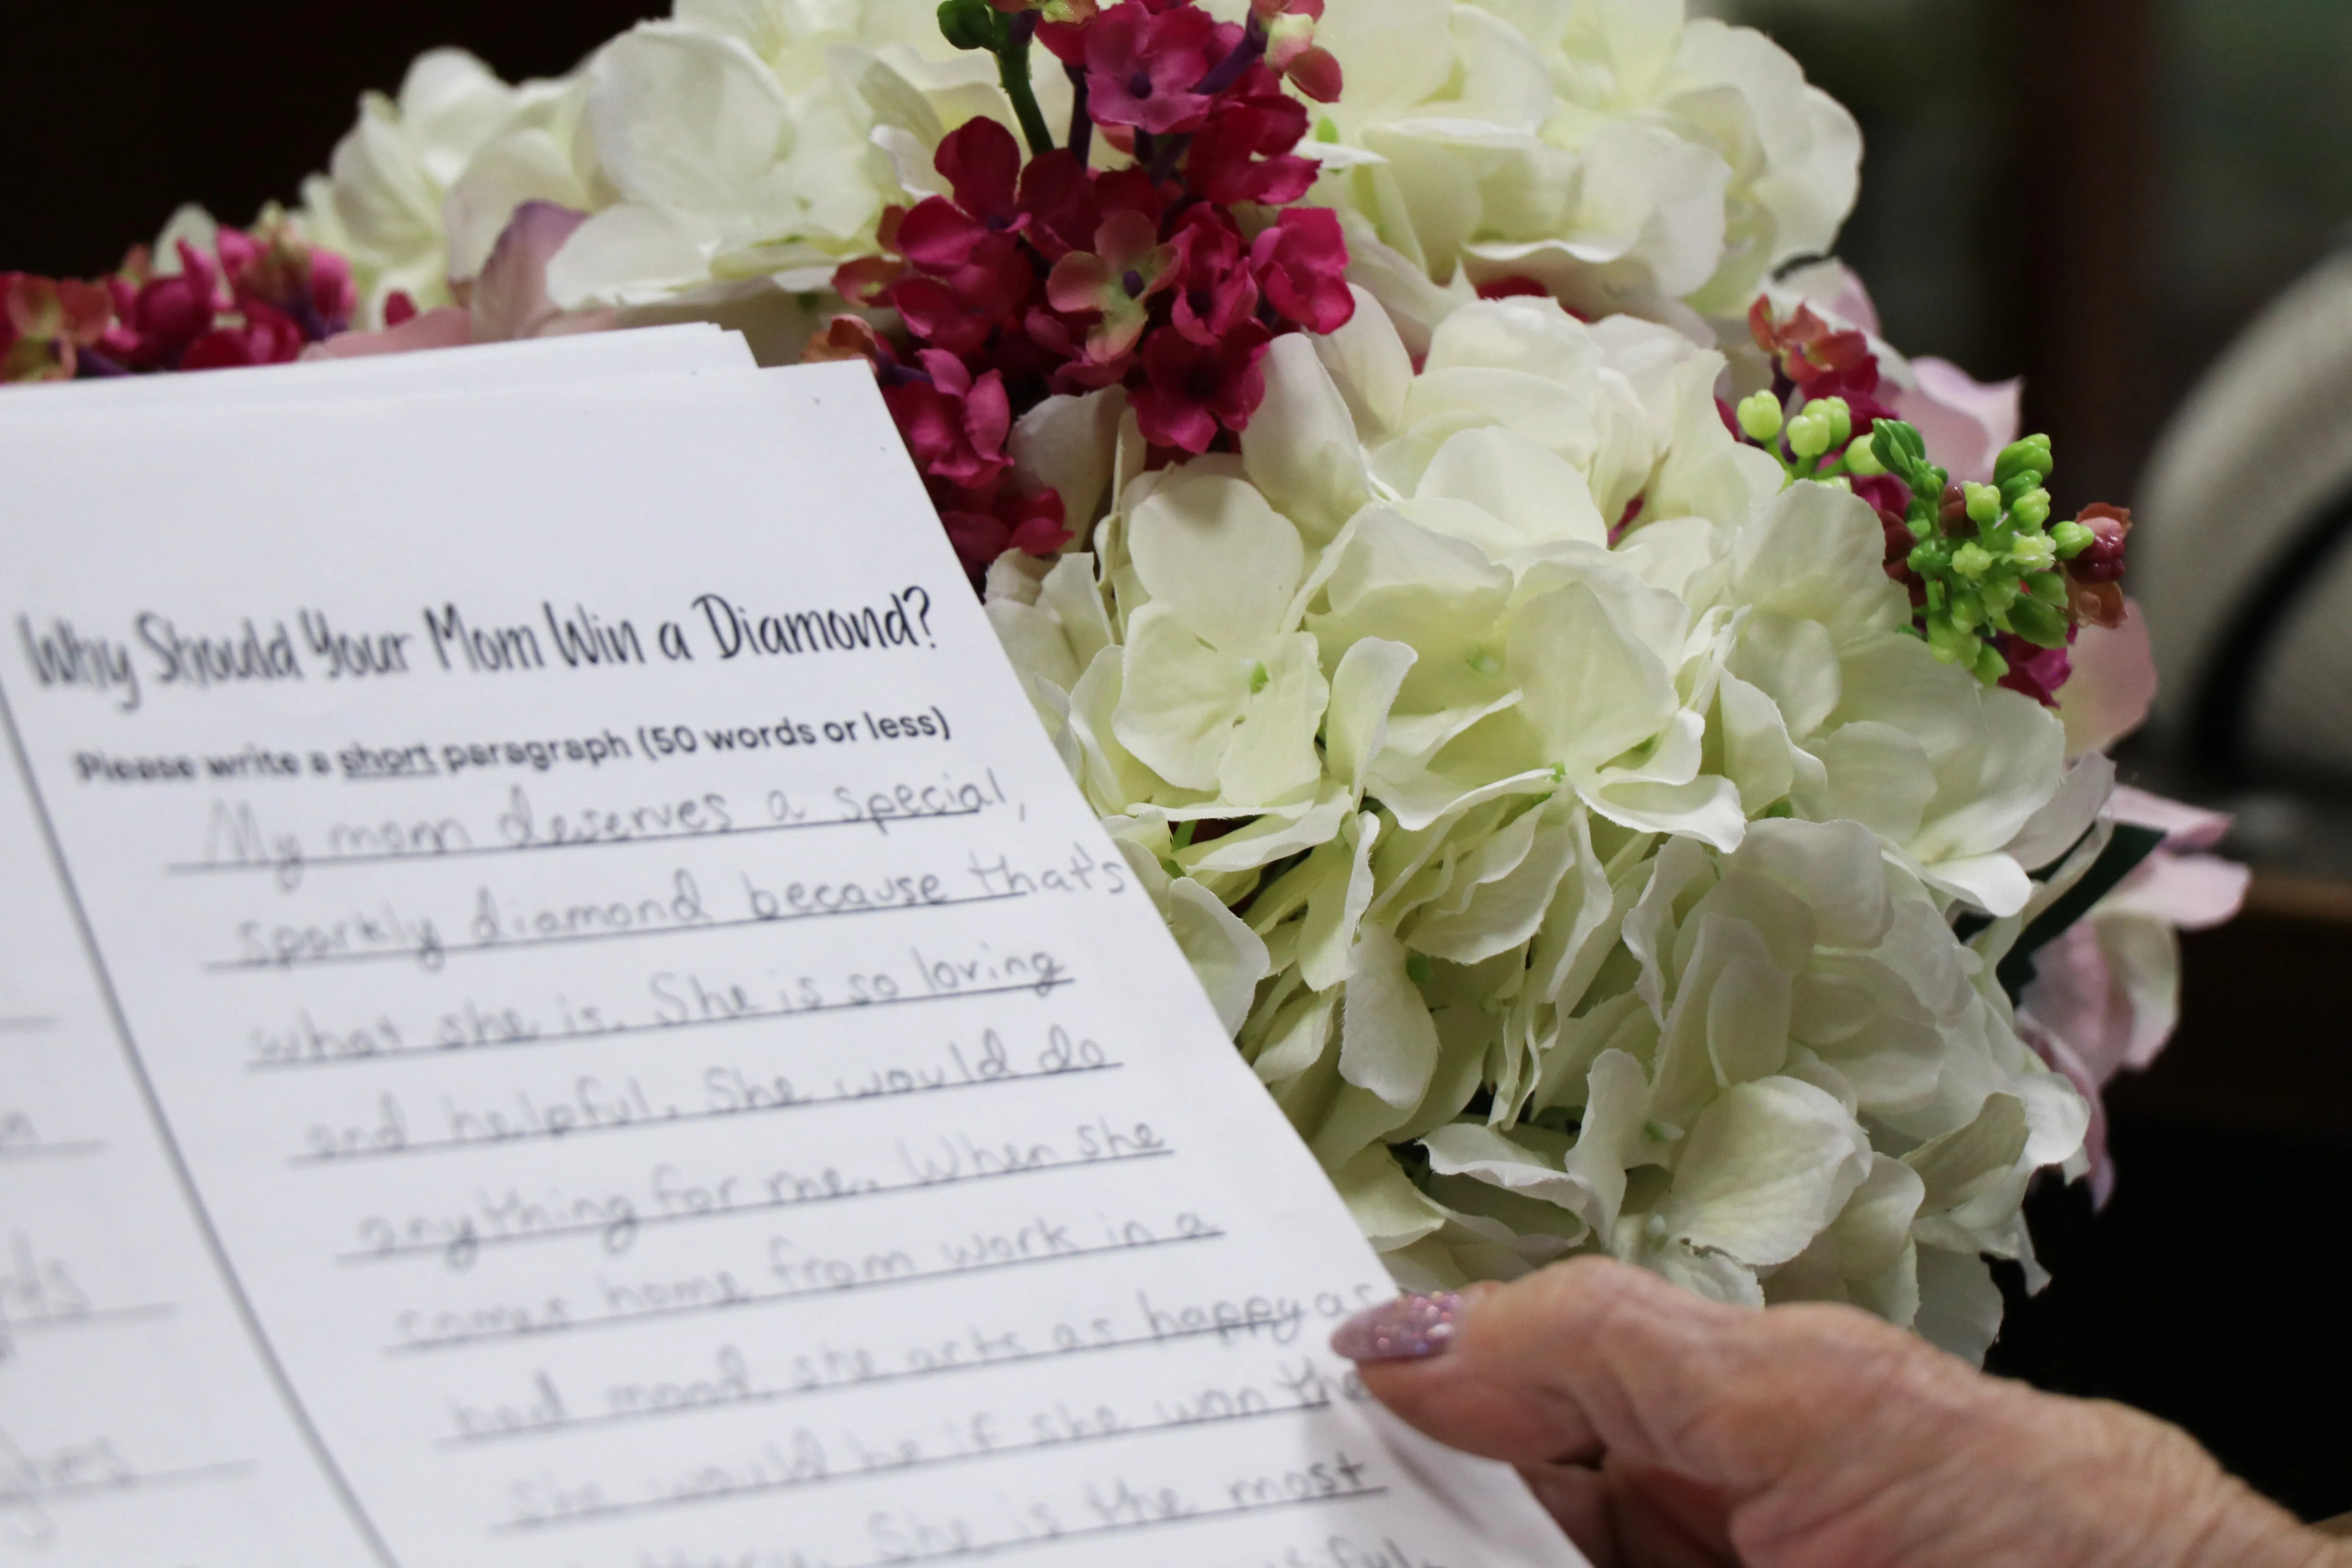 Why Should Your Mom Win a Diamond?
Please write a short paragraph (50 words or less)
My mom deserves a special,
sparkly diamond because that's
what she is. She is so loving
and helpful. She would do
anything for me. When she
comes home from work in a
bad mood, she acts as happy as
she would be if she won the
She is the most